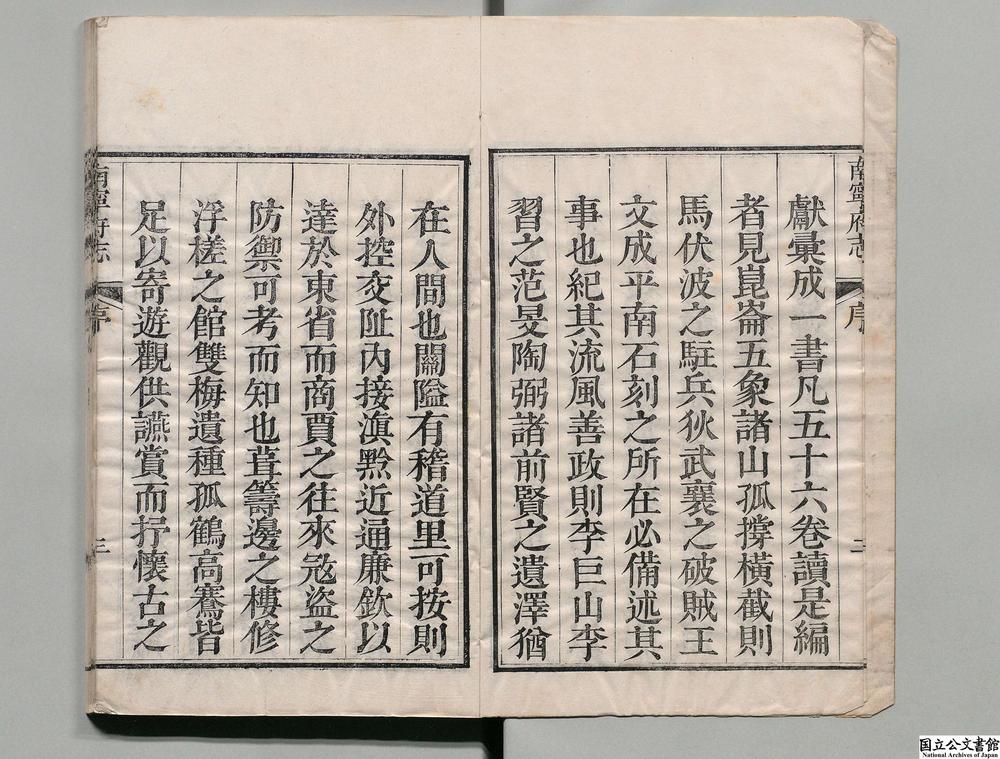 南寧府志
序
二
獻彙成一書凡五十六卷讀是編
者見崑崙五象諸山孤撐橫截則
馬伏波之駐兵狄武襄之破賊王
文成平南石刻之所在必備述其
事也紀其流風善政則李巨山李
習之范旻陶弼諸前賢之遺澤猶
在人間也關隘有稽道里可按則
外控交阯內接滇黔近通廉欽以
達於東省而商賈之往來宼盜之
防禦可考而知也葺籌邊之樓修
浮槎之館雙梅遺種孤鶴高騫皆
足以寄遊觀供讌賞而抒懷古之
南寧府志
序
三
国立公文書館
National Archives of Japan